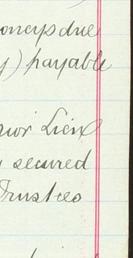 moneys due
) payable
prior Lien
secured
Trustees